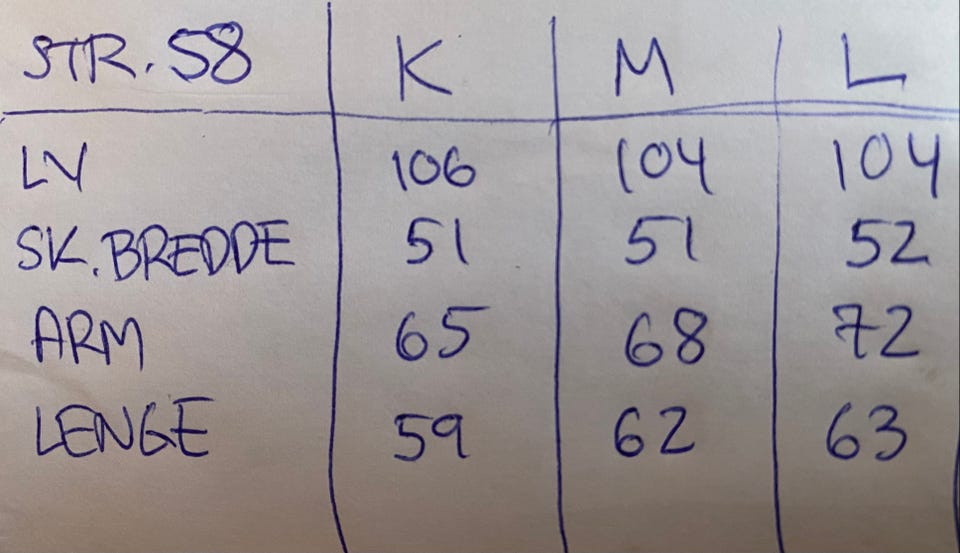 STR. 58 K M L
LV 106 104 104
SK. BREDDE 51 51 52
ARM 65 68 72
LENGE 59 62 63